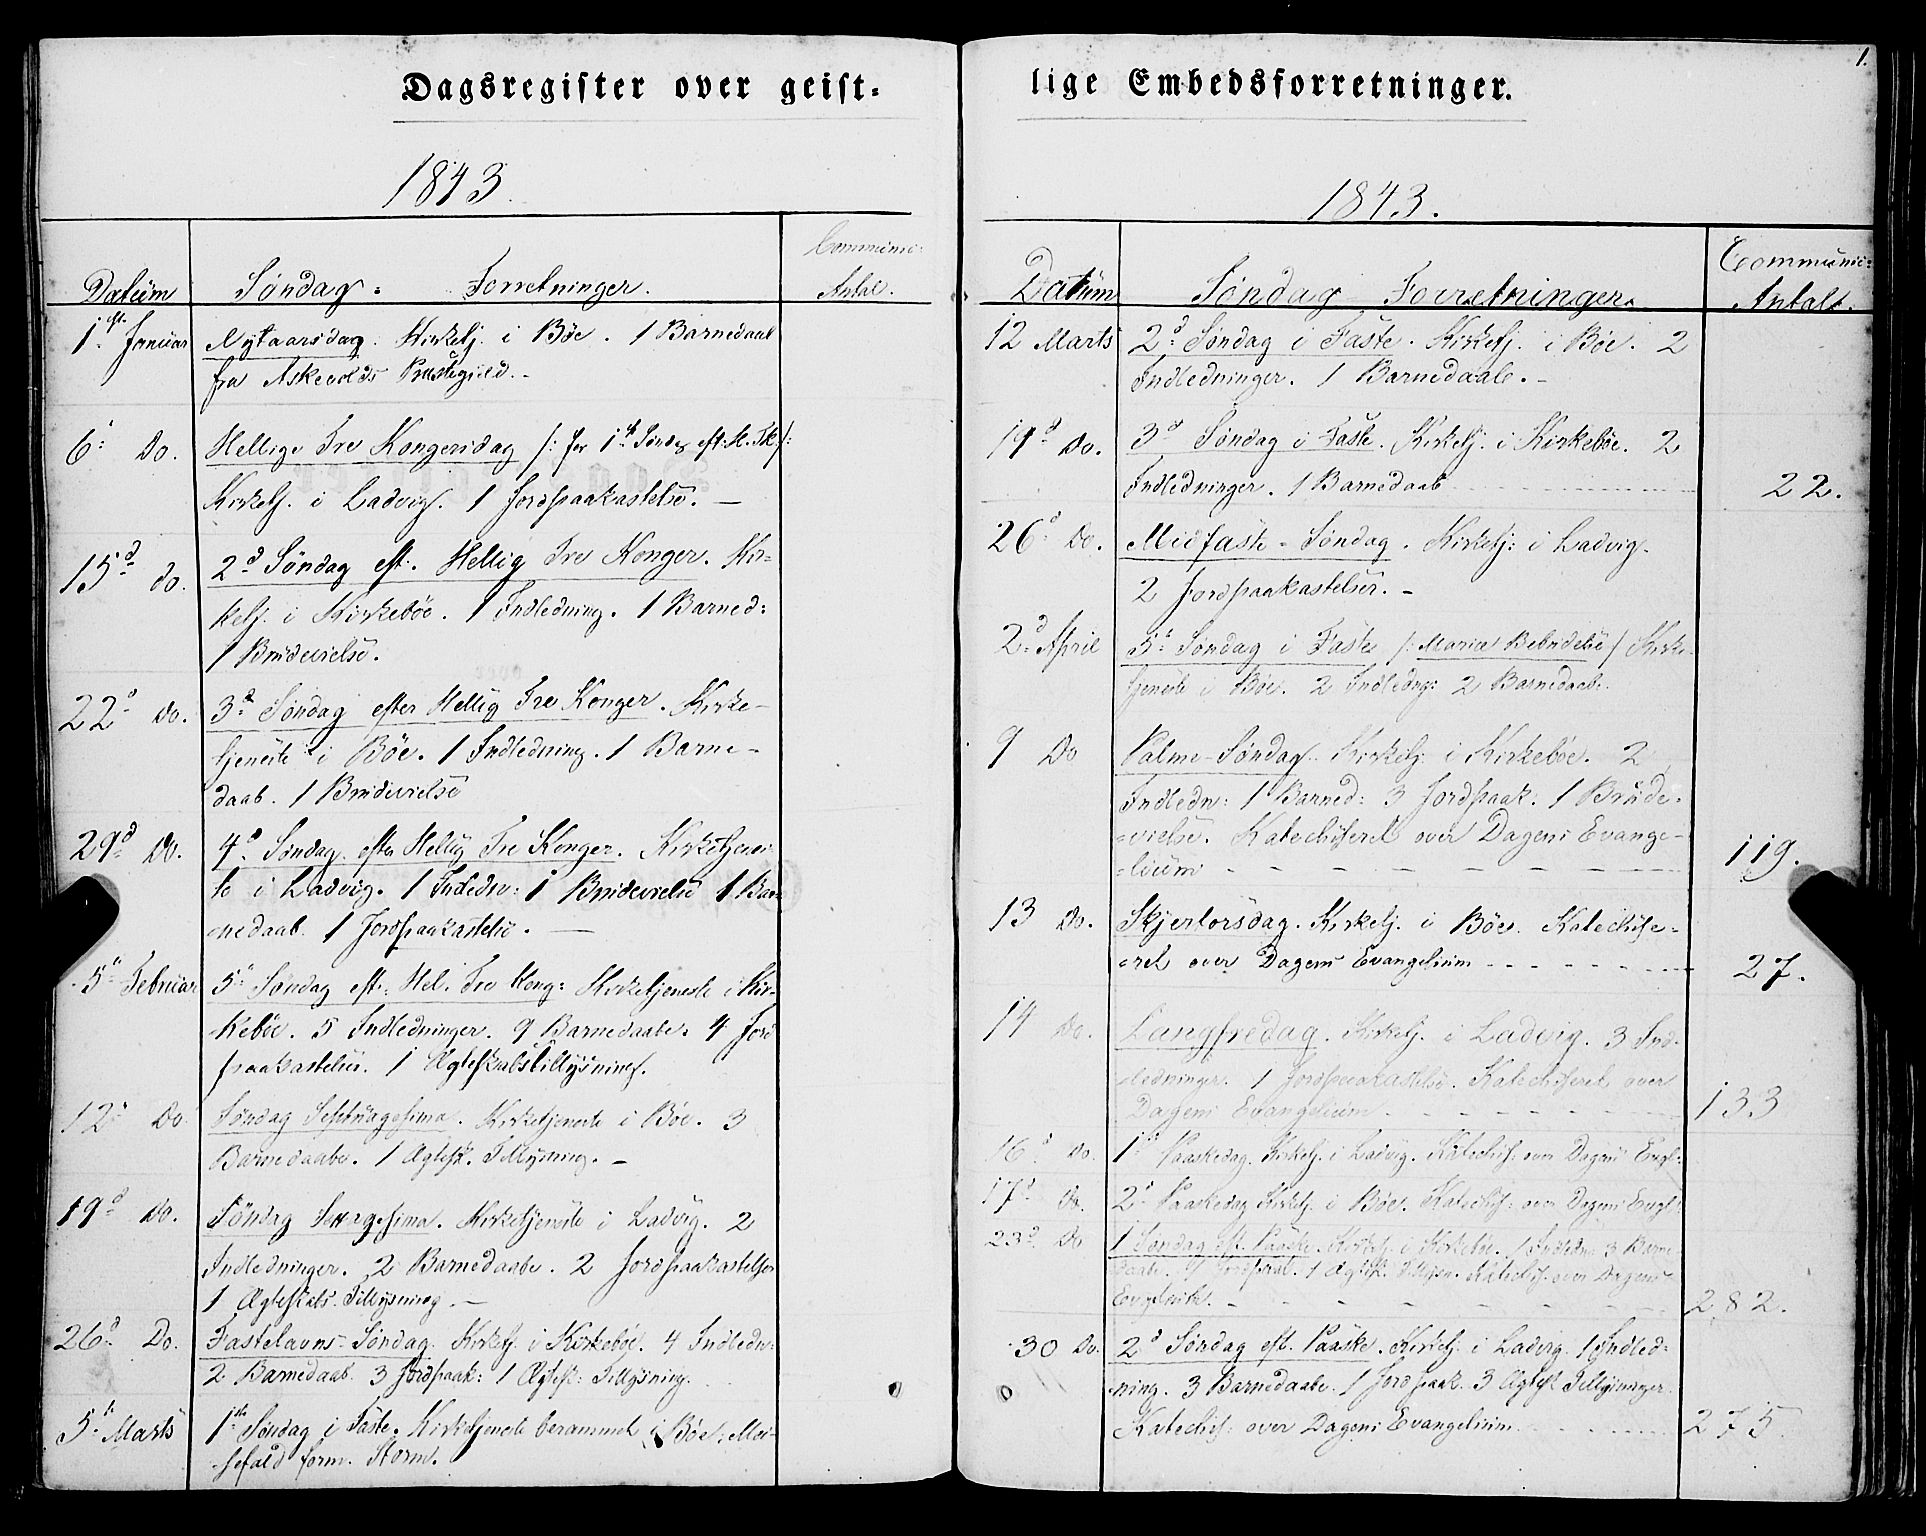 Dagsregister over geist-
1843.
Datum Søndag. Forretninger. Communic: Antal.
1ste Januar Nytaarsdag. Kirketj. i Bøe. 1 Barnedaab
fra Askevolds Præstegield. -
6: Do. Hellige Tre Kongersdag /: for 1ste Søndag eft: H. T. K. :/
Kirketj. i Ladvig. 1 Jordpaakastelse. —
15d do. 2d Søndag eft. Hellig Tre Konger. Kir-
ketj. i Kirkebøe. 1 Indledning. 1 Barned:
1 Brudevielse.
22d Do. 3d Søndag efter Hellig Tre Konger. Kirke-
tjeneste i Bøe. 1 Indledning. 1 Barne-
daab. 1 Brudevielse
29d Do. 4d Søndag efter Hellig Tre Konger. Kirketjenes-
te i Ladvig. 1 Indledn: 1 Brudevielse 1 Bar-
nedaab. 1 Jordpaakastelse. —
5te Februar 5te Søndag eft. Hel. Tre Kong: Kirketjeneste i Kir-
kebøe. 5 Indledninger. 9 Barnedaabe. 4 Jord
paakastelser. 1 Ægteskabstillysning.
12te Do Søndag Septuagesima. Kirketjeneste i Bøe. 3
Barnedaabe. 1 Ægtesk. Tillysning. —
19d Do. Søndag Sexagesima. Kirketjeneste i Ladvig. 2
Indledninger. 2 Barnedaabe. 2 Jordpaakastelser
1 Ægteskabs. Tillysning. —
26d Do. Fastelavns-Søndag. Kirketj. i Kirkebøe. 4 Indledn:
2 Barnedaab. 3 Jordpaak: 1 Ægtesk: Tillysning.
5te Marts 1ste Søndag i Faste. Kirketjeneste berammet i Bøe; Mes-
sefald form. Storm.
1.
lige Embedsforretninger.
1843.
Datum Søndag Forretninger. Communic: Antalt.
12 Marts 2d Søndag i Faste. Kirketj. i Bøe. 2
Indledninger. 1 Barnedaab. -
19d Do. 3d Søndag i Faste. Kirketj. i Kirkebøe. 2
Indledninger. 1 Barnedaab 22.
26d Do. Midfaste-Søndag. Kirketj: i Ladvig.
2 Jordpaakastelser. -
2d April 5te Søndag i Faste /: Mariæ Bebudelse / Kirke-
tjeneste i Bøe. 2 Indledng: 2 Barnedaab.
9 Do Palme-Søndag. Kirketj. i Kirkebøe. 2
Indledn: 1 Barned: 3 Jordpaak: 1 Brude-
vielse. Katechiseret over Dagens Evange-
lium - - - - - - 119.
13 Do. Skjertorsdag. Kirketj. i Bøe. Katechise-
ret over Dagens Evangelium - - - - - 27.
14 Do. Langfredag. Kirketj. i Ladvig. 3 Ind-
ledninger. 1 Jordpaakastelse. Katechiseret over
Dagens Evangelium. - - - - - 133
16d Do. 1ste Paaskedag. Kirketj. i Ladvig. Katechis: over Dagens Evgl:
17d Do. 2d Paaskedag Kirketj. i Bøe. Katechis: over Dagens Evgl:
23d Do 1 Søndag eft. Paaske. Kirketj. i Kirkebøe. 1 Indledn: 3 Barne-
daabe. 1 Jordpaak. 1 Ægtesk. Tillysn. Katechis. over Dagens
Evgelium. - - - - - - 282.
30 Do. 2d Søndag eft. Paaske. Kirketj. i Ladvig. 1 Indled-
ning. 3 Barnedaabe. 1 Jordpaak. 3 Ægtesk Tillysninger.
Katechis: over Dagens Evangelium. - - - - 275.